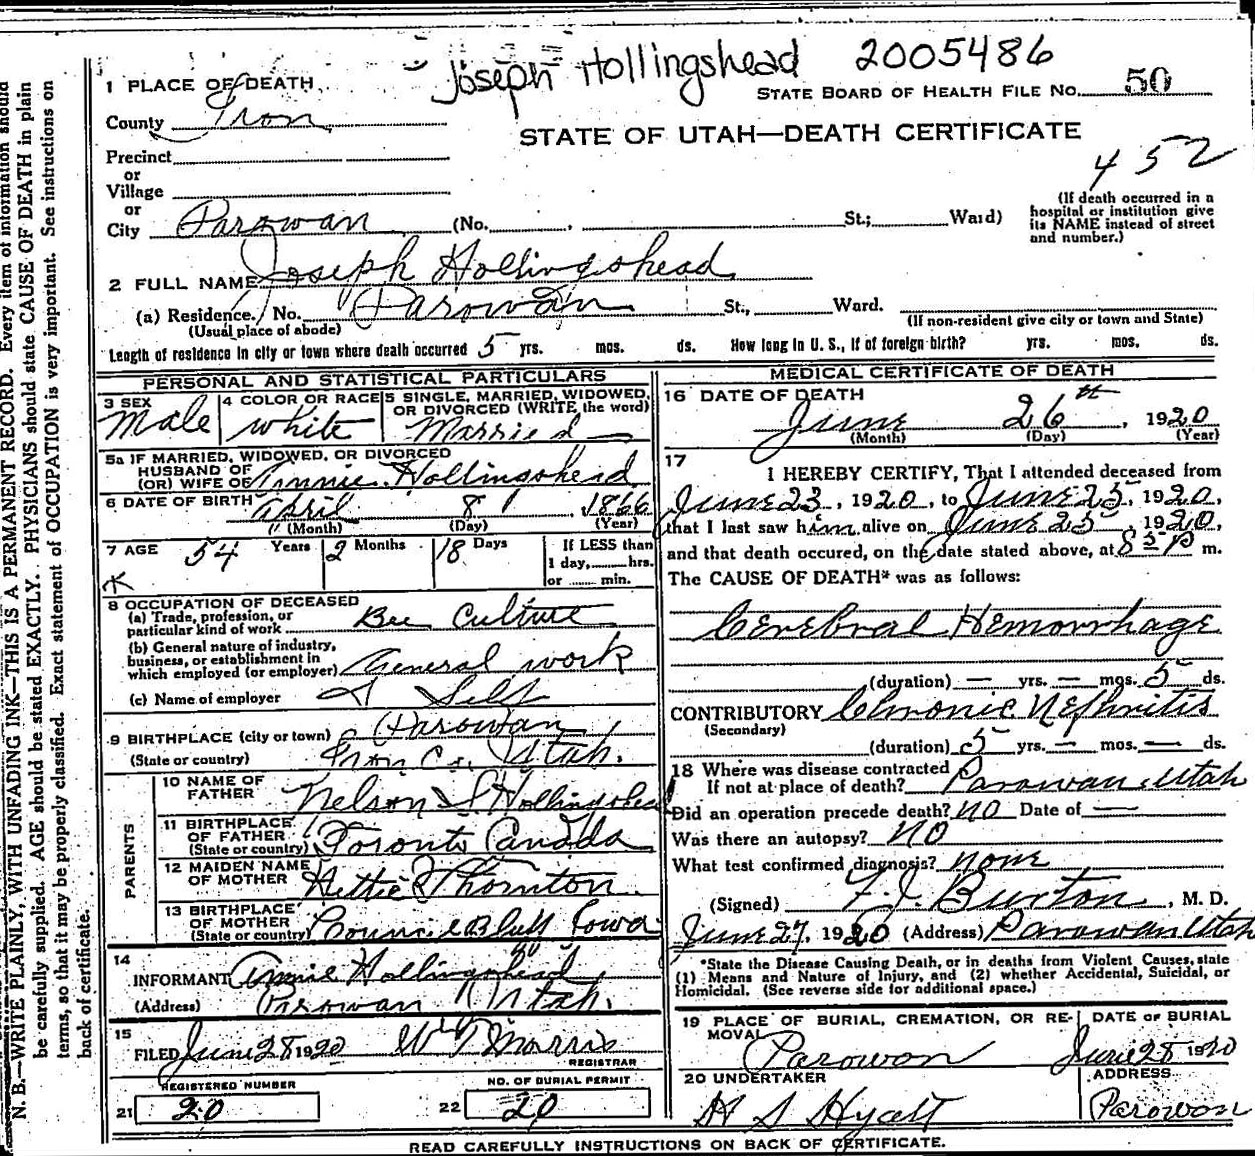 Joseph Hollingshead 2005486
1 PLACE OF DEATH
STATE BOARD OF HEALTH FILE No. 50
County Iron
STATE OF UTAH—DEATH CERTIFICATE
452
Precinct
or
Village
or
City Parowan (No. , St.; Ward)
(If death occurred in a hospital or institution give its NAME instead of street and number.)
2 FULL NAME Joseph Hollingshead
(a) Residence. No. Parowan St., Ward.
(Usual place of abode) (If non-resident give city or town and State)
Length of residence in city or town where death occurred 5 yrs. mos. ds. How long in U. S., if of foreign birth? yrs. mos. ds.
PERSONAL AND STATISTICAL PARTICULARS
3 SEX Male
4 COLOR OR RACE white
5 SINGLE, MARRIED, WIDOWED, OR DIVORCED (WRITE the word) Married
5a IF MARRIED, WIDOWED, OR DIVORCED
HUSBAND OF
(OR) WIFE OF Annie Hollingshead
6 DATE OF BIRTH April 8, 1866
(Month) (Day) (Year)
7 AGE 54 Years 2 Months 18 Days
If LESS than
1 day, hrs.
or min.
K
8 OCCUPATION OF DECEASED
(a) Trade, profession, or
particular kind of work Bee Culture
(b) General nature of industry,
business, or establishment in
which employed (or employer) General work
(c) Name of employer Self
9 BIRTHPLACE (city or town) Parowan
(State or country) Iron Co. Utah.
PARENTS
10 NAME OF FATHER Nelson S Hollingshead
11 BIRTHPLACE OF FATHER (State or country) Toronto Canada
12 MAIDEN NAME OF MOTHER Hettie Thornton
13 BIRTHPLACE OF MOTHER (State or country) Council Bluff Iowa
14
INFORMANT Annie Hollingshead
(Address) Parowan Utah.
15
FILED June 28 1920 W Morris
REGISTRAR
REGISTERED NUMBER
21 20
NO. OF BURIAL PERMIT
22 20
MEDICAL CERTIFICATE OF DEATH
16 DATE OF DEATH
June 26th, 1920
(Month) (Day) (Year)
17
I HEREBY CERTIFY, That I attended deceased from
June 23, 1920, to June 25, 1920,
that I last saw him alive on June 25, 1920,
and that death occured, on the date stated above, at 8 5 P m.
The CAUSE OF DEATH* was as follows:
Cerebral Hemorrhage
(duration) — yrs. — mos. 5 ds.
CONTRIBUTORY Chronic Nephritis
(Secondary)
(duration) 5 yrs. — mos. — ds.
18 Where was disease contracted
If not at place of death? Parowan Utah
Did an operation precede death? NO Date of —
Was there an autopsy? NO
What test confirmed diagnosis? none
(Signed) F. J. Burton, M. D.
June 27, 1920 (Address) Parowan Utah
*State the Disease Causing Death, or in deaths from Violent Causes, state
(1) Means and Nature of Injury, and (2) whether Accidental, Suicidal, or
Homicidal. (See reverse side for additional space.)
19 PLACE OF BURIAL, CREMATION, OR RE-
MOVAL
Parowan
DATE OF BURIAL
June 28 1920
20 UNDERTAKER
H S Hyatt
ADDRESS
Parowan
READ CAREFULLY INSTRUCTIONS ON BACK OF CERTIFICATE.
N. B.—WRITE PLAINLY, WITH UNFADING INK—THIS IS A PERMANENT RECORD. Every item of information should
be carefully supplied. AGE should be stated EXACTLY. PHYSICIANS should state CAUSE OF DEATH in plain
terms, so that it may be properly classified. Exact statement of OCCUPATION is very important. See instructions on
back of certificate.